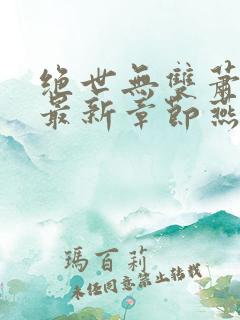 絕世無雙蕭
最新章節燕
瑪百莉
未任同意禁止转载